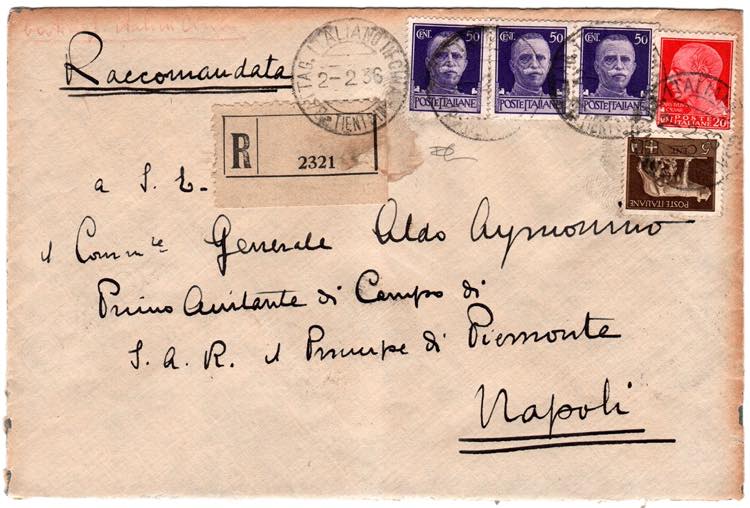 Raccomandata
TAG. ITALIANO IN CINA
2-2.36
TIENTSIN
CENT. 50
POSTE ITALIANE
CENT. 50
POSTE ITALIANE
CENT. 50
POSTE ITALIANE
POSTE
ITALIANE 20
5 CENT.
POSTE ITALIANE
R 2321
a S. E.
il Comm.re Generale Aldo Aymonino
Primo Aiutante di Campo di
S. A. R. il Principe di Piemonte
Napoli